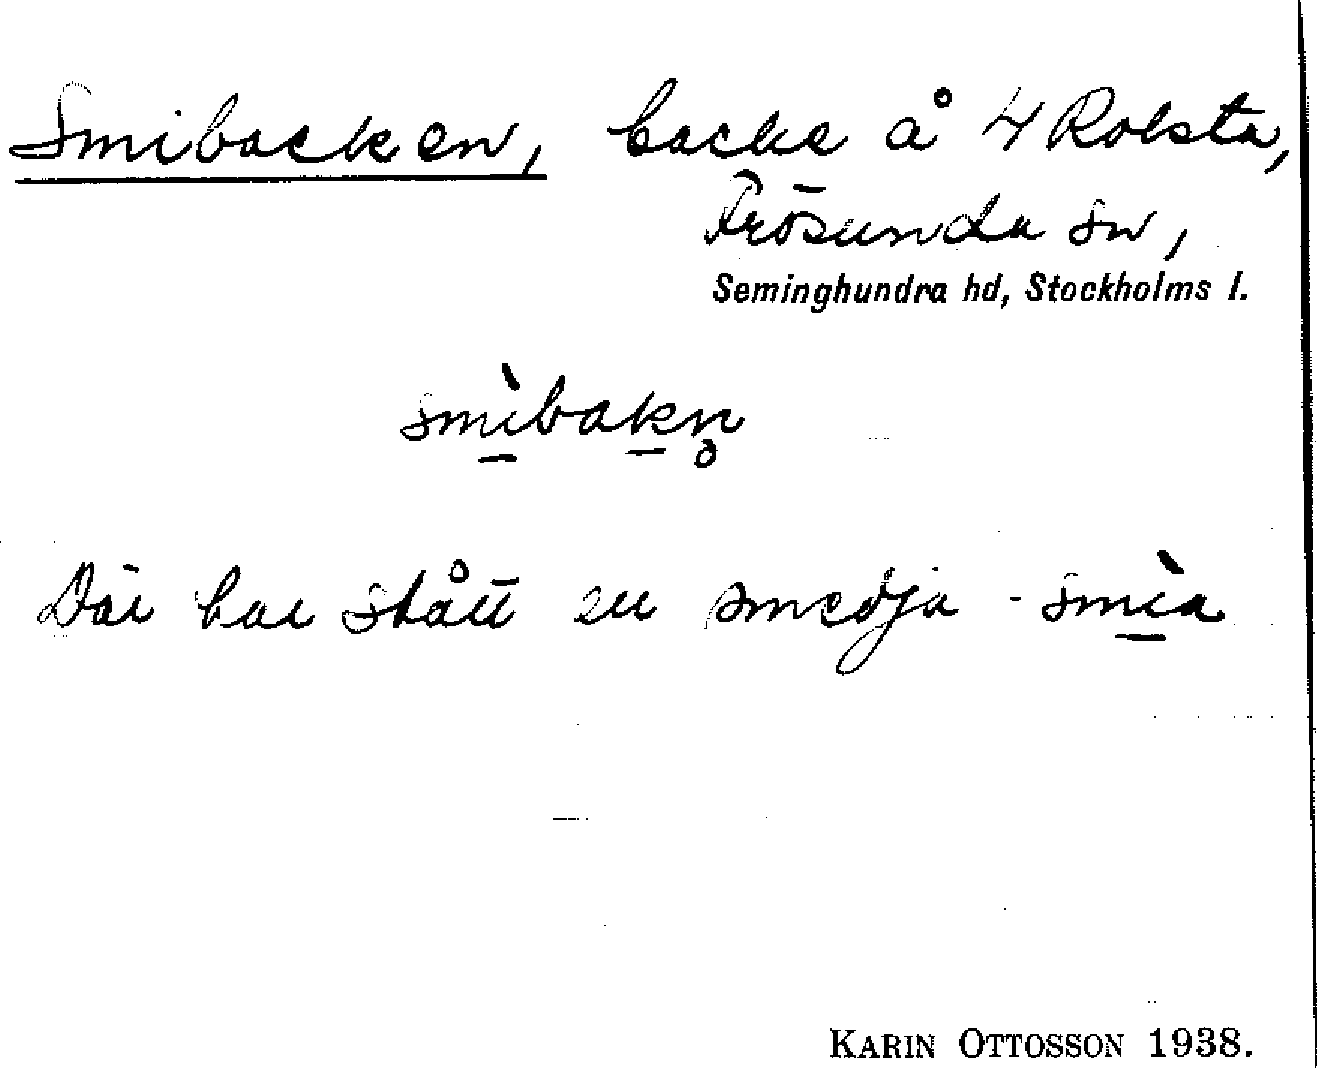 Smibacken, backe å 4 Rolsta,
Frösunda sn,
Seminghundra hd, Stockholms l.
smìbakn̥
Där har stått en smedja - smìa
KARIN OTTOSSON 1938.